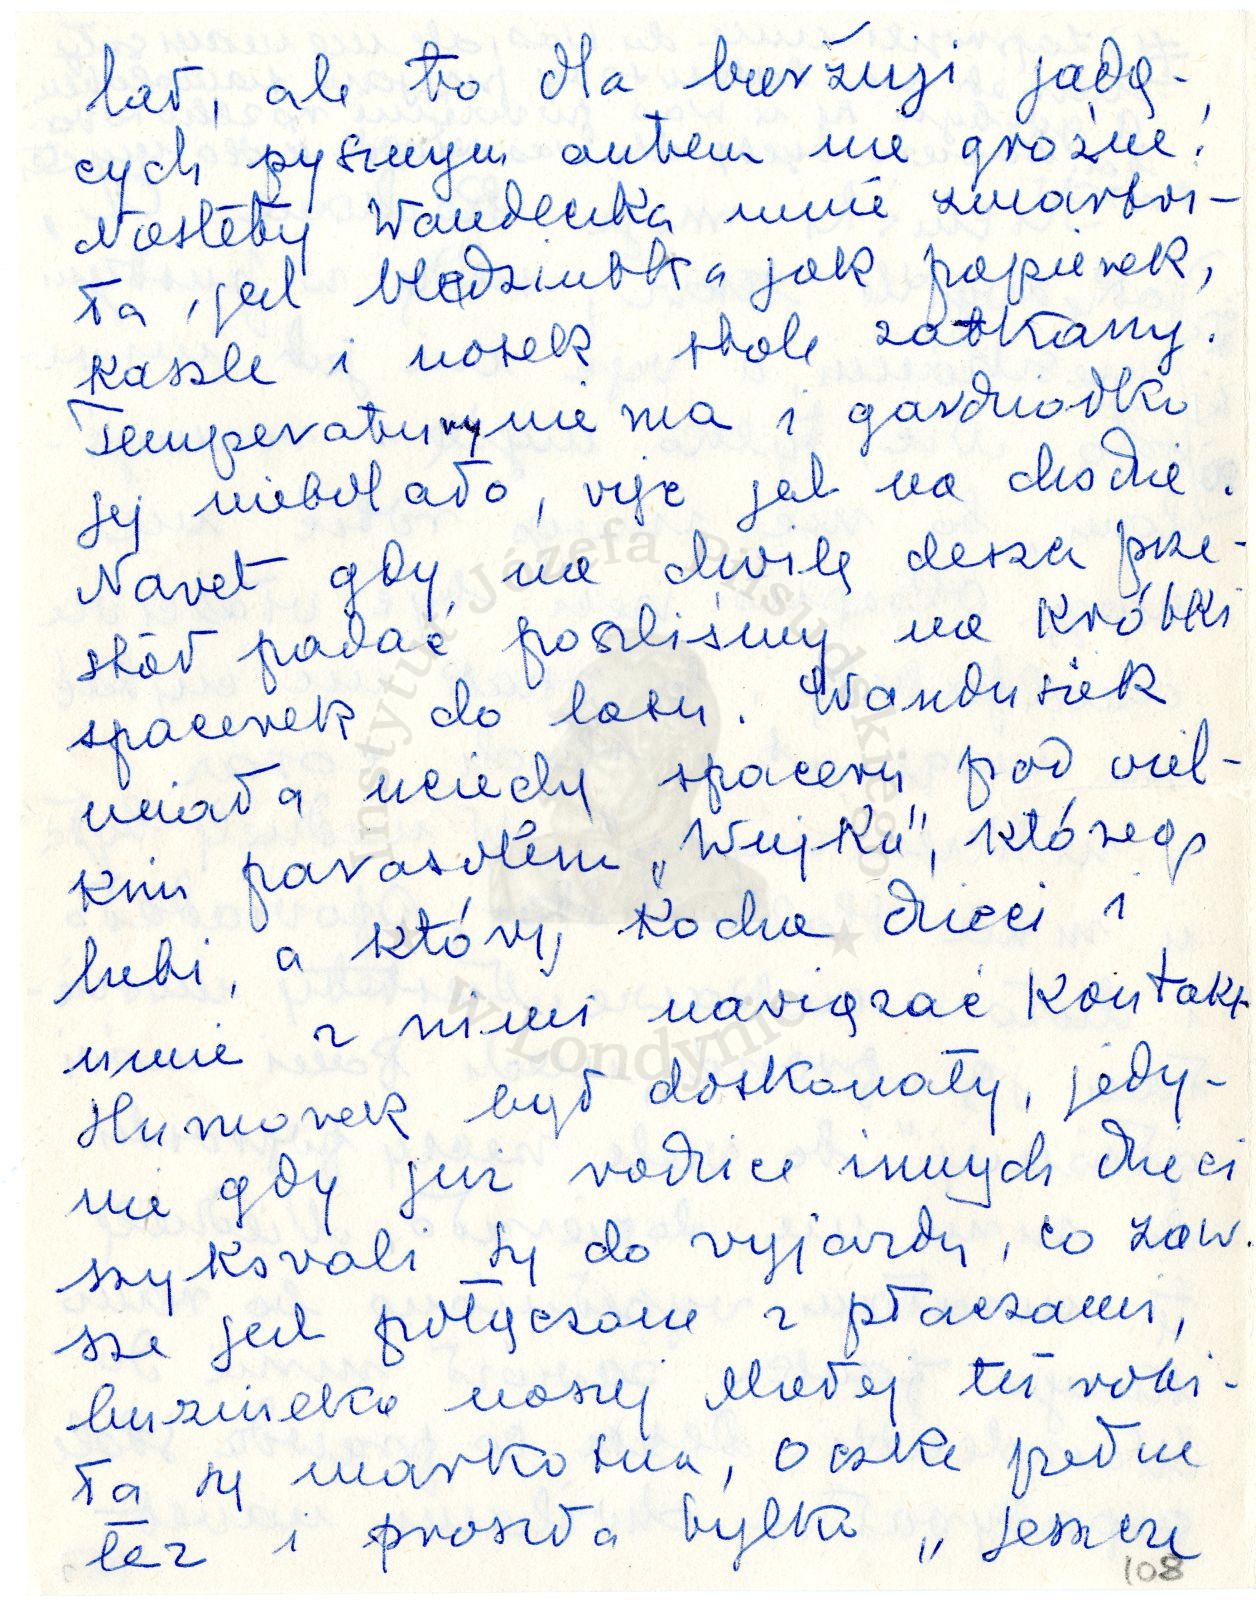 lał, ale to dla burżuji jadą-
cych pysznym autem nie groźne!
Niestety Wandeczka mnie zmartwi-
ła, jest bledziutka jak papierek,
kaszle i nosek stale zatkany.
Temperatury nie ma i gardziołko
jej niebolało, więc jest na chodzie.
Nawet gdy na chwilę deszcz prze-
stał padać poszliśmy na krótki
spacerek do lasu. Wandusiek
miała uciechę spaceru pod wiel-
kim parasolem "Wujka", którego
lubi, a który kocha dzieci i
umie z nimi nawiązać kontakt
Humorek był doskonały, jedy-
nie gdy już rodzice innych dzieci
szykowali się do wyjazdu, co zaw-
sze jest połączone z płaczami,
buziuchna naszej Małej też robi-
ła się markotna, oczka pełne
łez i prosiła tylko "jeszcze
108
Instytut Józefa Piłsudskiego
w Londynie